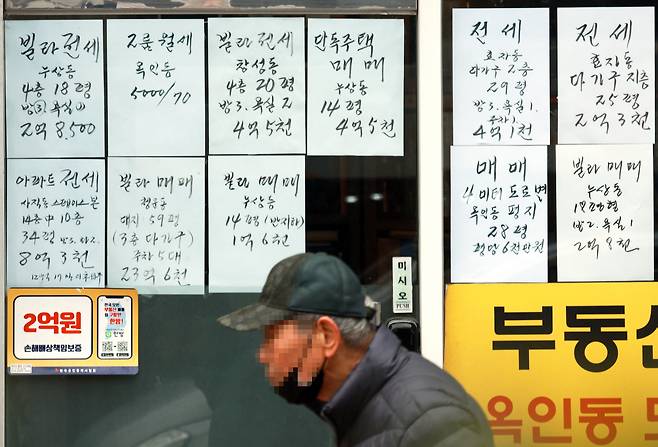 빌라 전세
누상동
4층 18평
방③. 욕실①
2억 8,500
2룸 월세
옥인동
5000/70
빌라 전세
창성동
4층 20평
방3. 욕실2
4억 5천
단독주택
매매
누상동
14평
4억 5천
전세
효자동
다가구 2층
29평
방3. 욕실1.
주차1
4억 1천
전세
효자동
다가구 지층
25평
2억 3천
아파트 전세
사직동 스페이스본
14층 中 10층
34평
8억 3천
빌라 매매
청운동
대지 59평
(3층 다가구)
주차 5대
23억 6천
빌라 매매
누상동
14평 (반지하)
1억 6천
매매
4미터 도로변
옥인동 평지
28평
평당 6천만원
빌라 매매
누상동
방2. 욕실1
2억 8천
미시오
PUSH
2억원
손해배상책임보증
부동산
한방
부동산
옥인동